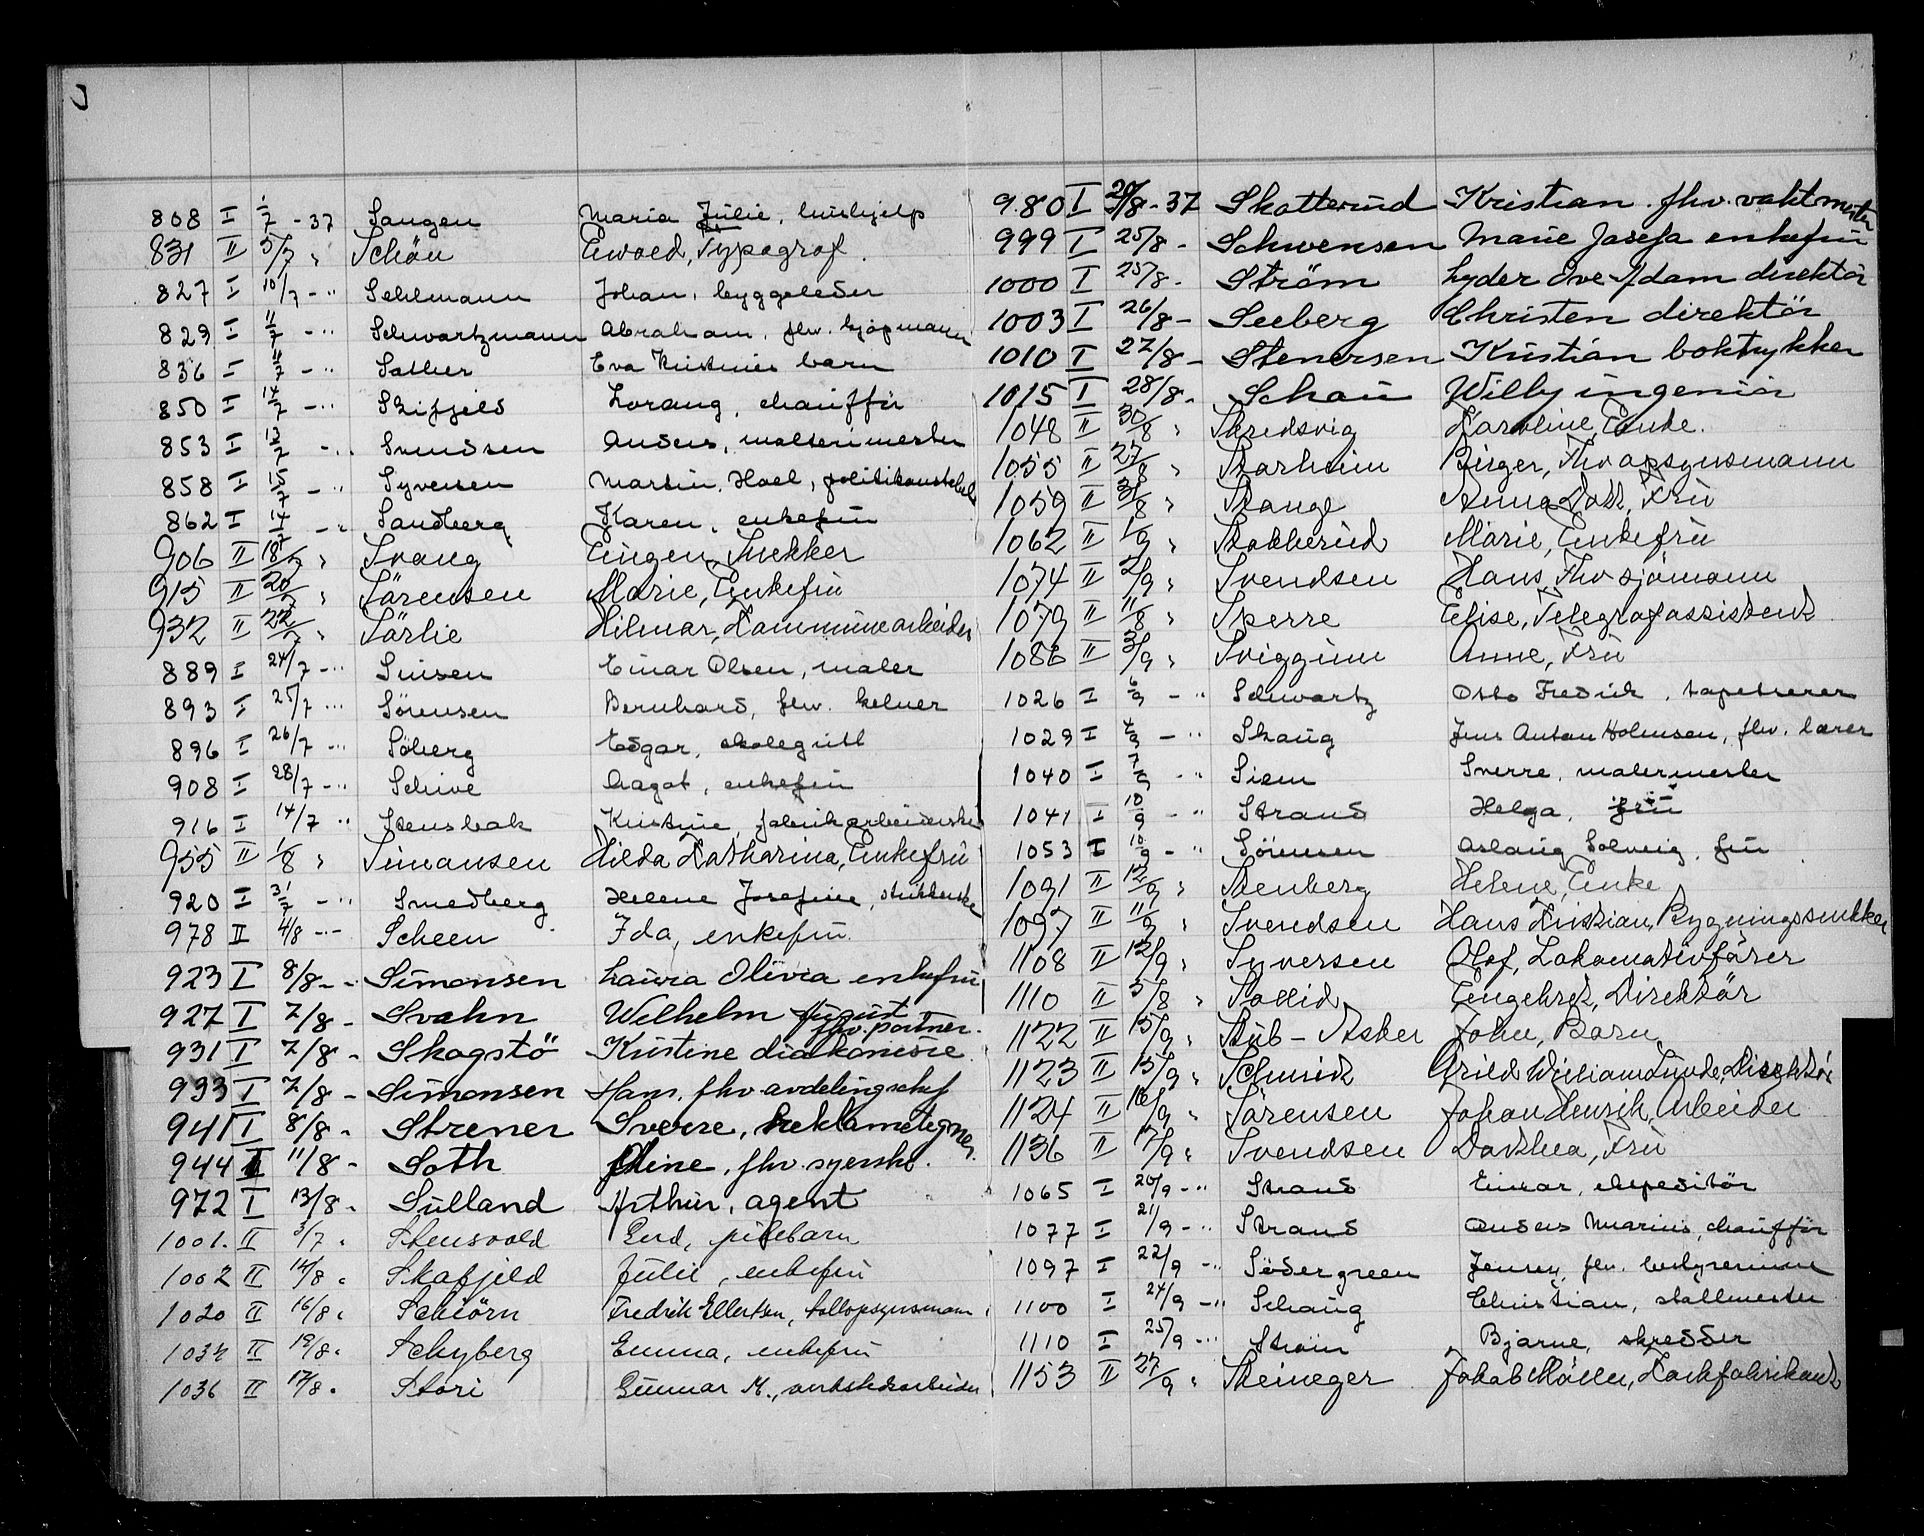 808 I 1/7 - 37 Saugen Maria Julie, hushjelp
831 II 5/7 " Schöu Ewald, Typograf.
827 I 10/7 - " Sehlmann Johan, byggeleder
829 I 11/7 - " Schwartzmann Abraham, fhv. kjøpmann
836 I 11/7 - " Sather Eva barn
850 I 14/7 - " Skifjeld Lorang, chauffør
853 I 13/7 - " Svendsen Anders, maltermester
858 I 15/7 - " Syversen Martin, Hoel, politikonstabel
862 I 14/7 - " Sandberg Karen, enkefru
906 II 18/7 " Svang Eugen, Snekker
915 II 20/7 " Sörensen Marie, Enkefru
932 II 22/7 " Sörlie Hilmar, Kommunearbeider
889 I 24/7 - " Einar Olsen, maler
893 I 25/7 " Sørensen Bernhard, fhv. kelner
896 I 26/7 - " Søberg Edgar, skolegutt
908 I 28/7 - " Schive Aagot, enkefru
916 I 14/7 " Stensbak Kristine, fabrikarbeiderske
955 II 1/8 " Simansen Hilda Katharina, Enkefru
920 I 31/7 - " Smedberg Helene Josefine,
978 II 4/8 - - Scheen Ida, enkefru.
923 I 8/8 - - Simonsen Laura Olivia enkefru
927 I 7/8 - Svahn Wilhelm August fhv. portner.
931 I 7/8 - Skogstö Kristine diakonisse
933 I 7/8 - Simonsen Hans. fhv avdelingschef
941 I 8/8 - Strener Sverre, reklametegner.
944 I 11/8 - Soth Oline, fhv. syerske.
972 I 13/8 - Sulland Arthur, agent
1001. II 3/7 " Stensvold Gerd, pikebarn
1002 II 14/8 " Skafjeld Julie, enkefru
1020 II 16/8 " Schiörn Fredrik Ellertsen, tollopsynsmann
1034 II 19/8 " Schyberg Emma, enkefru
1036 II 17/8 " Stori Gunnar M., verkstedsarbeider
980 I 20/8 - 37 Skotterud Kristian. fhv. vaktmester
999 I 25/8 - Schwensen Marie Josefa enkefru
1000 I 25/8 - Ström Lyder Ove Adam direktör
1003 I 26/8 - Seeberg Christen direktör
1010 I 27/8 - Stenersen Kristian boktrykker
1015 I 28/8 - Schau Willy ingeniör
1048 II 30/8 " Skredsvig Karoline, Enke.
1055 II 27/8 " Storheim Birger, Fhv opsynsmann
1059 II 31/8 " Stange Anna Dort, Fru
1062 II 1/9 " Stokkerud Marie, Enkefru
1074 II 2/9 " Svendsen Hans, Fhv sjömann
1079 II 11/8 " Sperre Elise, Telegrafassistent
1086 II 3/9 " Sviggum Anne, Fru
1026 I 6/9 - " Schwartz Otto Fredrik, tapetserer
1029 I 4/9 - " Skaug Jens Anton Holmsen, fhv. lærer
1040 I 7/9 - " Siem Sverre, malermester
1041 I 10/9 - " Strand Helga, fru
1053 I 10/9 - " Sörensen Aslaug Solveig, fru
1091 II 12/9 " Stenberg Helene, Enke
1097 II 11/9 " Svendsen Hans Kristian, Bygningssnekker
1108 II 12/9 " Syversen Olof, Lokomotivförer
1110 II 5/8 " Sollid Engebret, Direktör
1122 II 15/9 " Stub - Asker John, Barn
1123 II 15/9 " Schmidt Arild William Lunde, Direktör
1124 II 16/9 " Sörensen Johan Henrik, Arbeider
1136 II 17/9 " Svendsen Dorthea, Fru
1065 I 20/9 - " Strand Einar, ekspeditør
1077 I 21/9 - " Strand Anders Marius, chauffør
1097 I 22/9 - " Södergreen Jensey, fhv. bestyrerinne
1100 I 24/9 - " Schaug Christian, stallmester
1110 I 25/9 - " Strøm Bjarne, skredder
1153 II 27/9 " Steineger Jakob Möller, Korkfabrikant